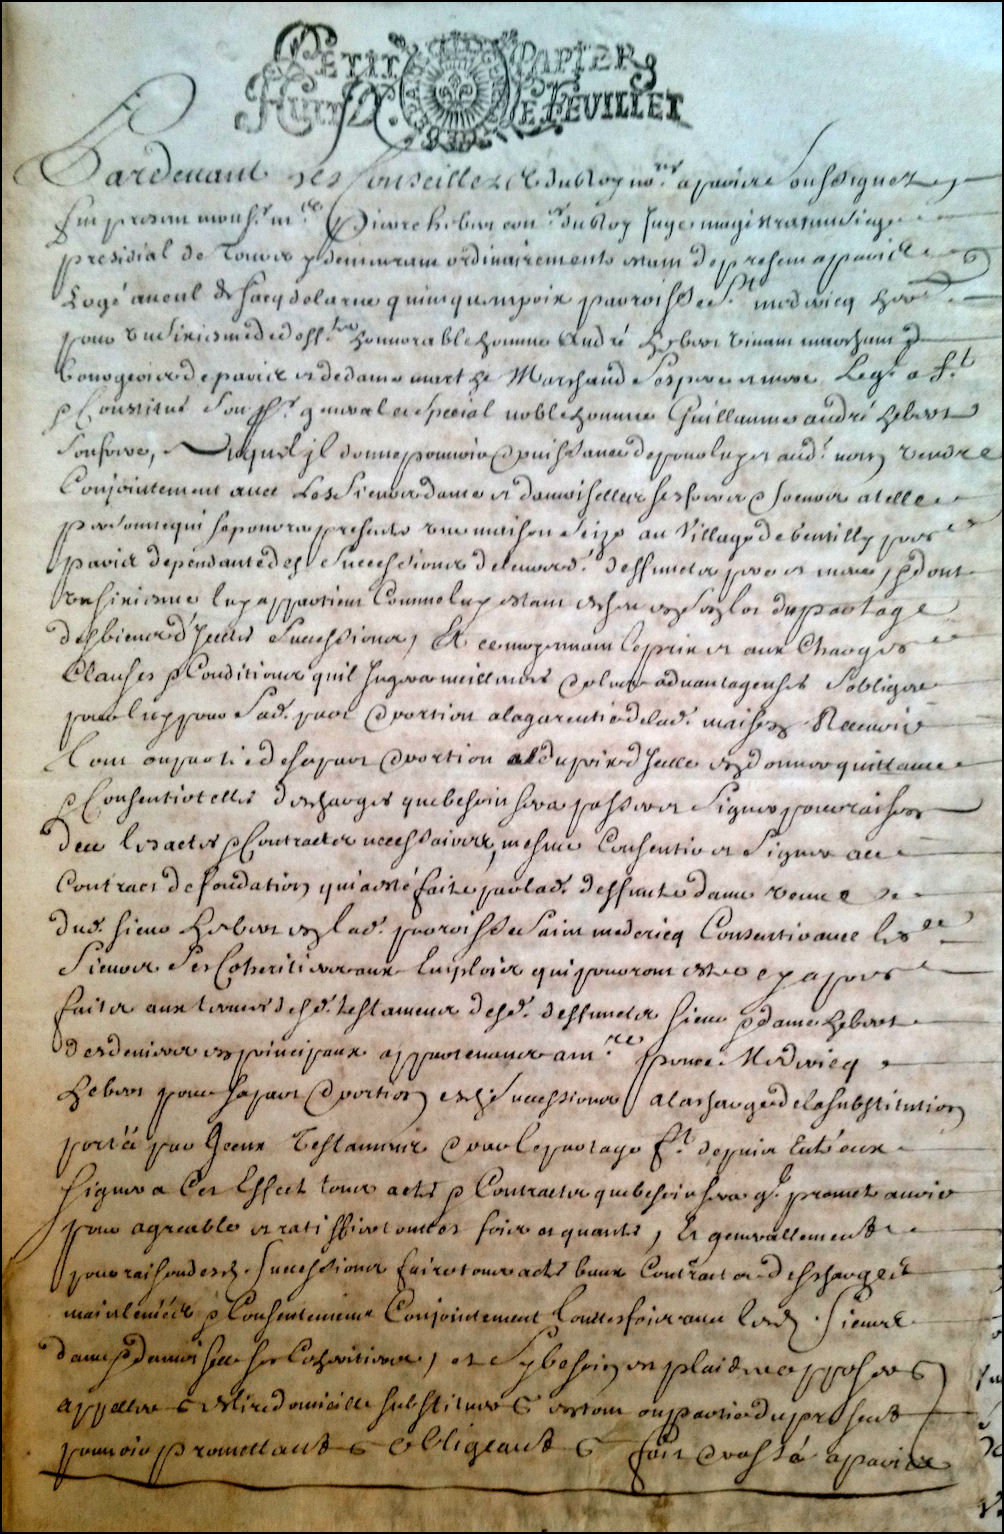 PETIT PAPIER
HUIT D. LE FEUILLET
Pardevant les Conseillers du Roy no.res a paris Soussignez
fut present mons.r m.re Pierre hebert con.er du Roy Juge magistrat au Siege
presidial de Tours y demeurant ordinairement estant de present a paris
Logé au cul de sacq de la rue quinquempoix parroisse S.t medericq
honnorable homme André hebert vivant marchand
bourgeois de paris et de dame marthe Marchand Ses pere et mere Leql a f.t
p Constitué Son pr.r general et Special noble homme Guillaume andré hebert
Son frere, Auquel jl donne pouvoir puissance de pour luy et aud.t nom vendre
Conjointement avec Les Sieurs dame et damoiselles ses freres et soeurs a telle
personne qui se poura presenter une maison Seize au Village de Gentilly pres
paris dependante des Successions desd. deffuncts pere et mere, dont
luy appartient Comme luy estant du partage
des biens d'Jcelles Successions, Et ce moyennant le prix et aux Charges
Clauses p Conditions quil Jugera meilleures plus advantageuses S'obliger
pour luy pour Sad. part portion a la garentie de lad. maison Recevoir
tout ou partie de sa part portion du prix d'Jcelle en donner quittance
p Consentir telles descharges que besoin sera passer et Signer pour raison
de ce les actes p Contracts necessaires, mesme Consentir et Signer au
Contract de fondation qui a esté faite par lad. deffunte dame veuve
dud. Sieur hebert en lad. parroisse Saint medericq Consentir avec les
Sieurs Ses Coheritiers aux Employs qui pouront estre cy apres
faits aux termes des d. testamens desd. deffuncts Sieur p dame hebert
des deniers en principaux appartenans a m.re pierre Medericq
hebert pour sa part portion Successions a la charge de la substitution
portée par Jceux Testamens par le partage f.t depuis Entr'eux
Signer a Cet Effect tous actes p Contracts que besoin sera q.l promet avoir
pour agreable et ratiffier toutes fois et quantes, Et generallement
pour raison desd. Successions faire tous actes baux Contracts descharges
mainlevées p Consentemens Conjointement touttesfois avec lesd. Sieurs
dame p damoiselle ses Coheritiers, et Sy besoin est plaider opposer
appeller eslire domicille substituer en tout ou partie du present
pouvoir promettant obligeant fait passé a paris